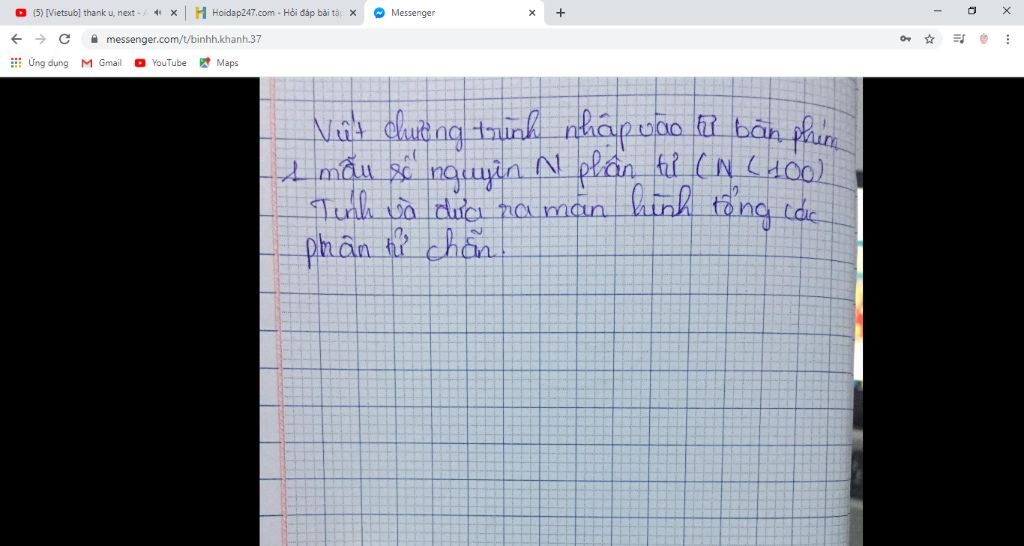 (5) [Vietsub] thank u, next -
Hoidap247.com - Hỏi đáp bài tậ
Messenger
messenger.com/t/binhh.khanh.37
Ứng dụng
Gmail
YouTube
Maps
Viết chương trình nhập vào từ bàn phím
1 mẫu số nguyên N phần tử (N < 100)
Tính và đưa ra màn hình tổng các
phần tử chẵn.